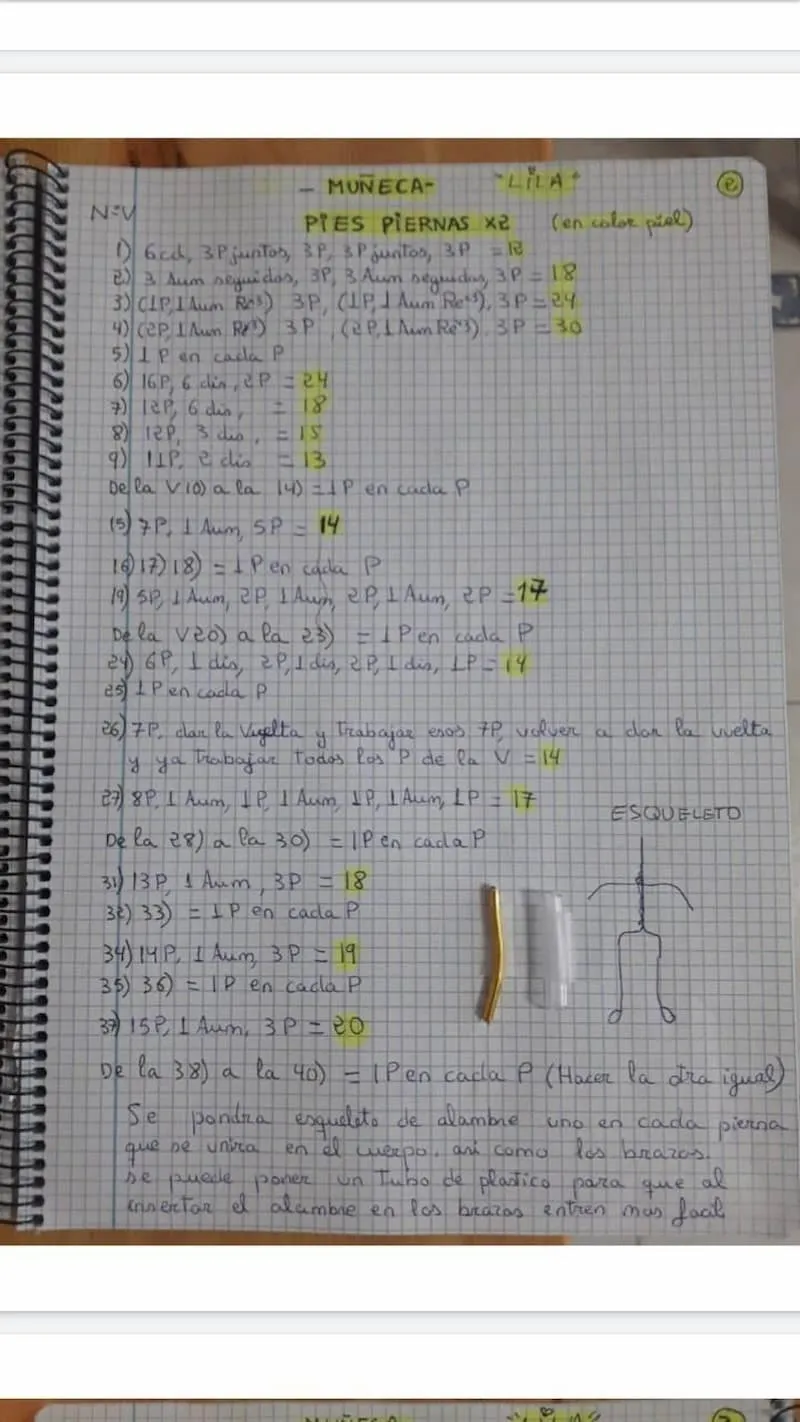 - MUÑECA- "LILA" 2
N=V
PIES PIERNAS X2 (en color piel)
1) 6cd, 3P juntos, 3P, 3P juntos, 3P = 12
2) 3 Aum seguidos, 3P, 3 Aum seguidos, 3P = 18
3) (1P, 1 Aum Rex3) 3P, (1P, 1 Aum Rex3), 3P = 24
4) (2P, 1 Aum Rex3) 3P, (2P, 1 Aum Rex3). 3P = 30
5) 1 P en cada P
6) 16P, 6 dis, 2P = 24
7) 12P, 6 dis, = 18
8) 12P, 3 dis, = 15
9) 11P, 2 dis = 13
De la V10) a la 14) = 1P en cada P
15) 7P, 1 Aum, 5P = 14
16) 17) 18) = 1P en cada P
19) 5P, 1 Aum, 2P, 1 Aum, 2P, 1 Aum, 2P = 17
De la V20) a la 23) = 1P en cada P
24) 6P, 1 dis, 2P, 1 dis, 2P, 1 dis, 1P = 14
25) 1P en cada P
26) 7P, dar la vuelta y trabajar esos 7P, volver a dar la vuelta
y ya trabajar todos los P de la V = 14
27) 8P, 1 Aum, 1P, 1 Aum, 1P, 1 Aum, 1P = 17
ESQUELETO
De la 28) a la 30) = 1P en cada P
31) 13P, 1 Aum, 3P = 18
32) 33) = 1P en cada P
34) 14P, 1 Aum, 3P = 19
35) 36) = 1P en cada P
37) 15P, 1 Aum, 3P = 20
De la 38) a la 40) = 1P en cada P (Hacer la otra igual)
Se pondra esqueleto de alambre uno en cada pierna
que se unira en el cuerpo. asi como los brazos.
se puede poner un tubo de plastico para que al
insertar el alambre en los brazos entren mas facil